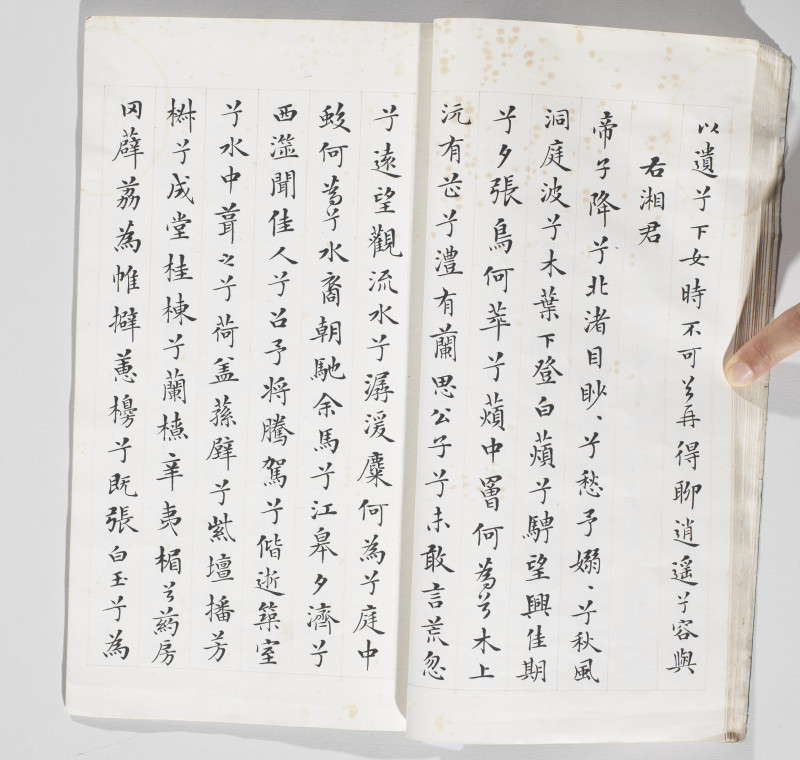 以遺兮下女時不可兮再得聊逍遥兮容與
右湘君
帝子降兮北渚目眇〻兮愁予嫋〻兮秋風
洞庭波兮木葉下登白薠兮騁望興佳期
兮夕張鳥何萃兮薠中罾何為兮木上
沅有芷兮澧有蘭思公子兮未敢言荒忽
兮遠望觀流水兮潺湲麋何為兮庭中
蛟何為兮水裔朝馳余馬兮江皋夕濟兮
西澨聞佳人兮召予将騰駕兮偕逝築室
兮水中葺之兮荷盖蓀壁兮紫壇播芳
椒兮成堂桂棟兮蘭橑辛夷楣兮葯房
罔薜荔為帷擗蕙櫋兮既張白玉兮為